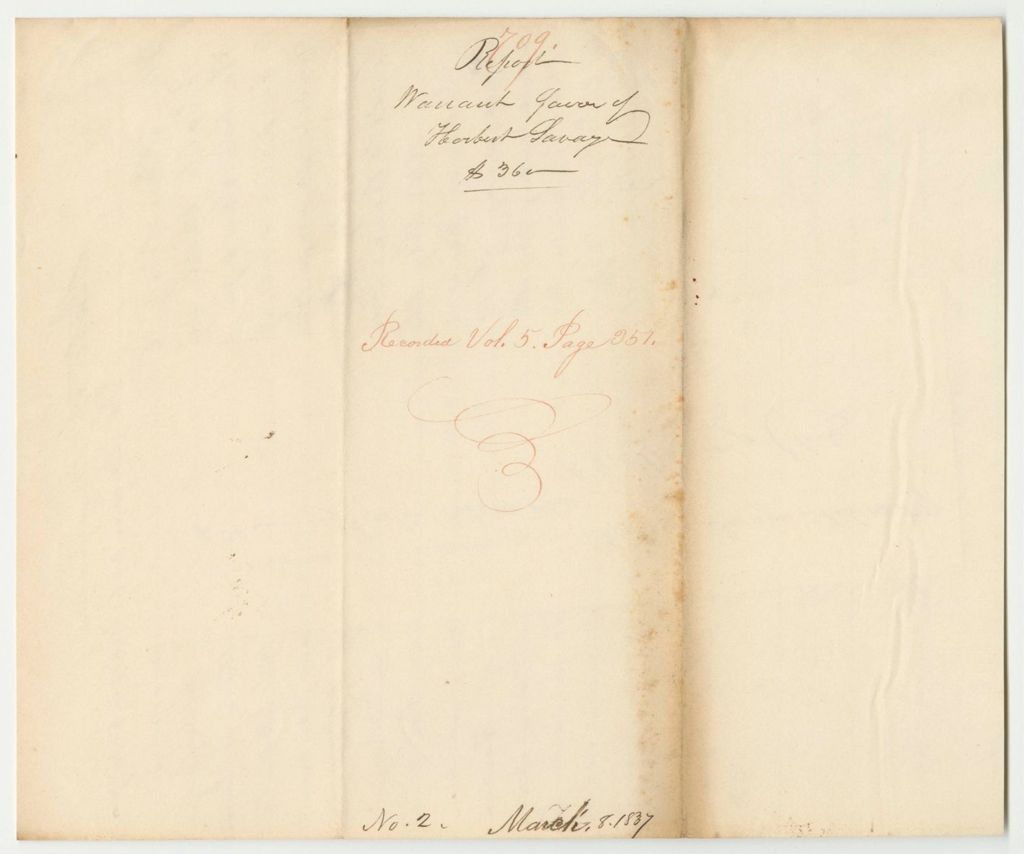 709
Report
Warrant favor of
Herbert Savage
$ 36
Recorded Vol. 5. Page 351.
No. 2. March, 8. 1837